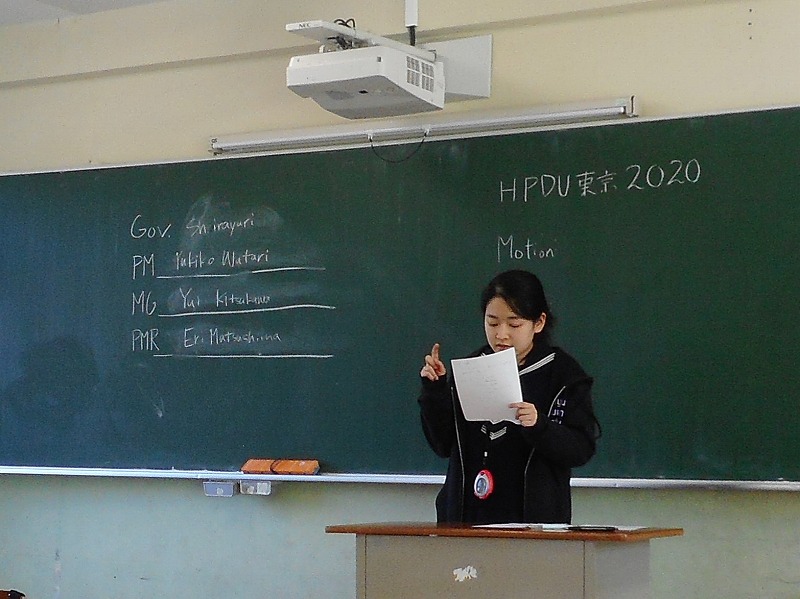 NEC
HPDU 東京 2020
Gov. Shirayuri
Motion
PM Yukiko Watari
MG Yui
PMR Eri Matsushima